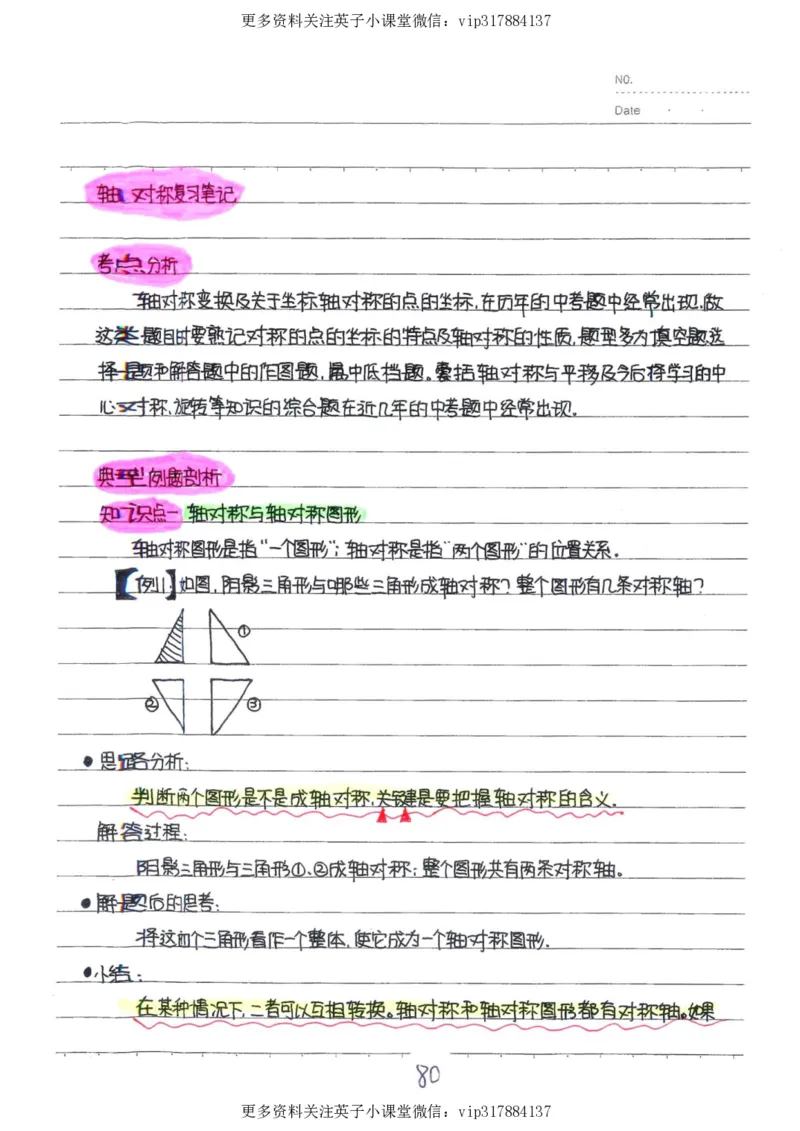 更多资料关注英子小课堂微信：vip317884137
NO.
Date
轴对称复习笔记
考点分析
轴对称变换及关于坐标轴对称的点的坐标,在历年的中考题中经常出现,做
这类题目时要熟记对称的点的坐标的特点及轴对称的性质,题型多为填空题、选
择题和解答题中的作图题,属中低档题。囊括轴对称与平移及今后将学习的中
心对称、旋转等知识的综合题在近几年的中考题中经常出现.
典型例题剖析
知识点一 轴对称与轴对称图形
轴对称图形是指“一个图形”;轴对称是指“两个图形”的位置关系.
【例1】如图,阴影三角形与哪些三角形成轴对称?整个图形有几条对称轴?
①
② ③
• 思路分析:
判断两个图形是不是成轴对称,关键是要把握轴对称的含义.
解答过程:
阴影三角形与三角形①、②成轴对称;整个图形共有两条对称轴。
• 解题后的思考:
将这四个三角形看作一个整体,使它成为一个轴对称图形.
• 小结:
在某种情况下,二者可以互相转换。轴对称和轴对称图形都有对称轴。如果
80
更多资料关注英子小课堂微信：vip317884137